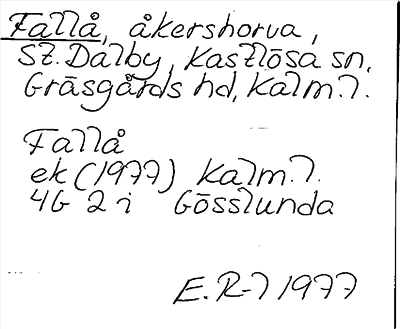 Fallå, åkershorva,
St. Dalby, Kastlösa sn,
Gräsgårds hd, Kalm. l.
Fallå
ek (1977) Kalm. l.
4G 2 i Gösslunda
E. R-l 1977